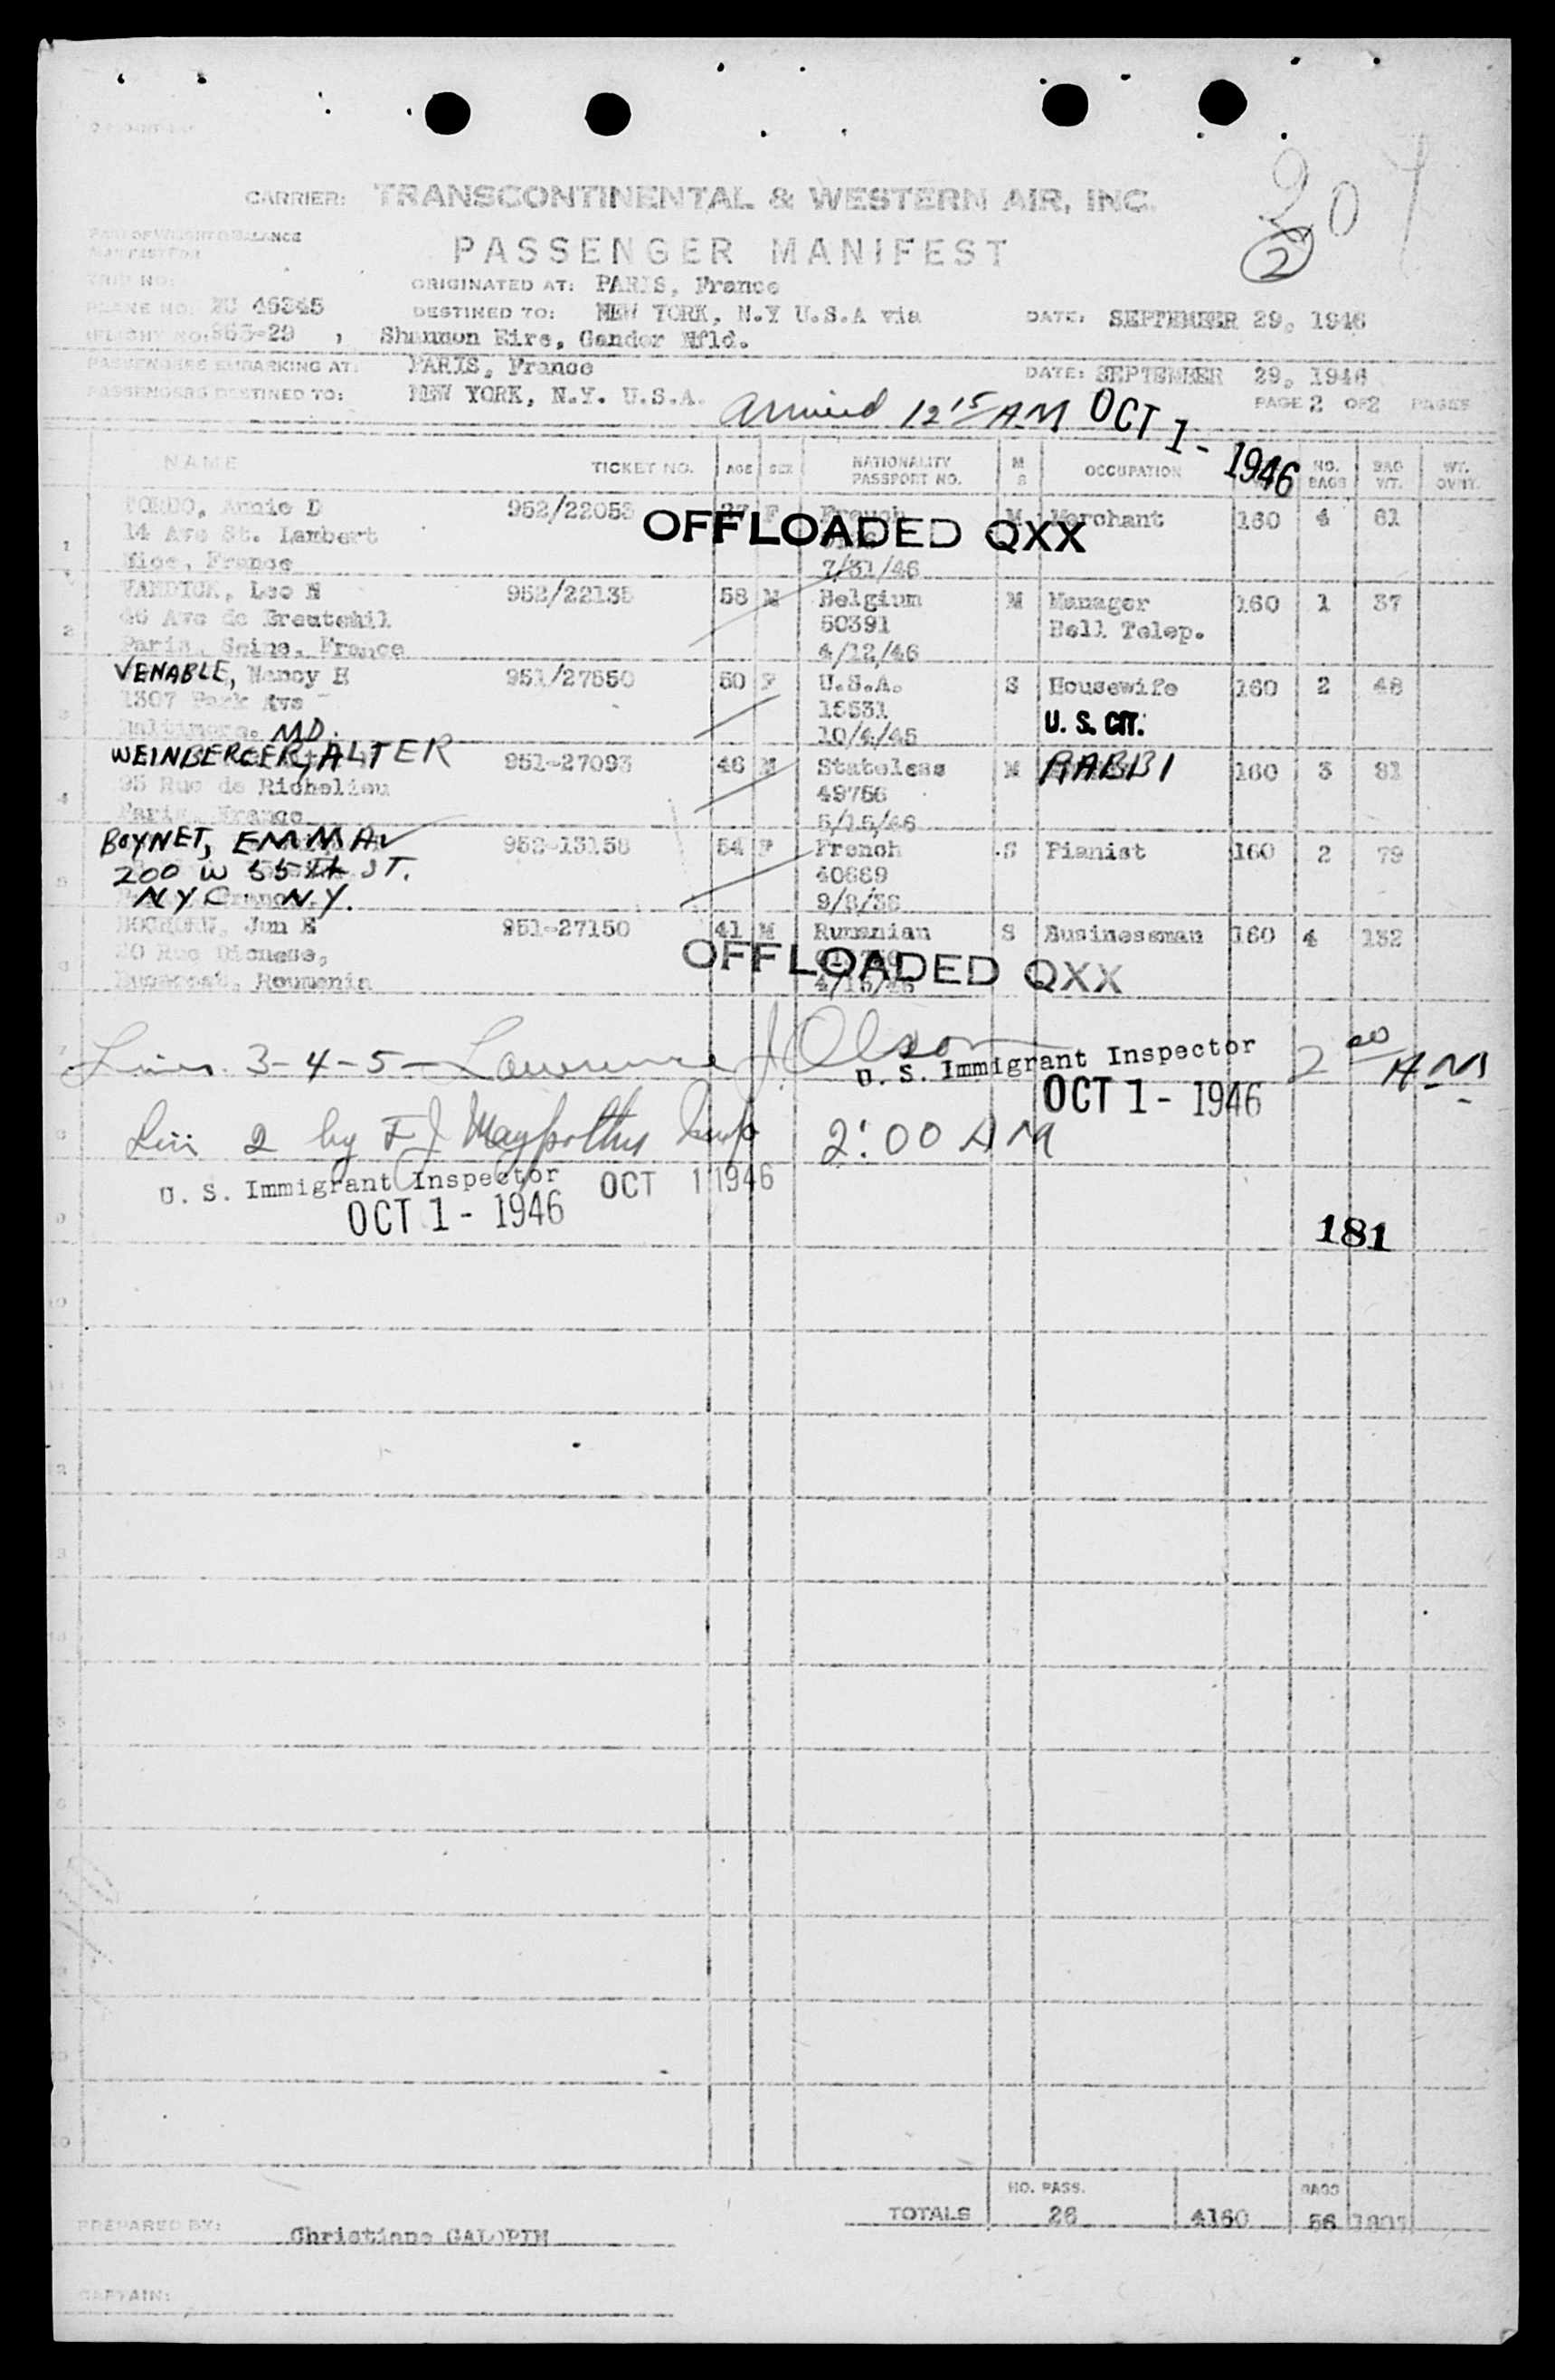 207
CARRIER: TRANSCONTINENTAL & WESTERN AIR, INC.
PASSENGER MANIFEST
2
TRIP NO:
ORIGINATED AT: PARIS, France
PLANE NO: 46345
DESTINED TO: NEW YORK, N.Y U.S.A via
DATE: SEPTEMBER 29, 1946
963-29 , Shannon Eire, Gander Nfld.
PASSENGERS EMBARKING AT: PARIS, France
DATE: SEPTEMBER 29, 1946
PASSENGERS DESTINED TO: NEW YORK, N.Y. U.S.A.
PAGE 2 OF 2 PAGES
Arrived 12 15 AM OCT 1 - 1946
NAME TICKET NO. AGE SEX NATIONALITY PASSPORT NO. M S OCCUPATION NO. BAGS BAG WT. WT. OV'WT.
Annie D 952/22053 F French M Merchant 160 4 61
14 Ave St. Lambert
OFFLOADED QXX
1 Nice, France 7/31/46
Leo N 952/22135 58 M Belgium M Manager 160 1 37
46 Ave de 50391 Bell Telep.
2 Paris, Seine, France 4/12/46
VENABLE, Nancy H 951/27550 50 F U.S.A. S Housewife 160 2 48
1307 Park Ave 15531 U. S. CIT.
3 Baltimore. MD. 10/4/45
WEINBERGER, ALTER 951-27093 46 M Stateless M RABBI 160 3 81
95 Rue de Richelieu 49756
4 Paris, France 5/15/46
BOYNET, EMMA 952-13158 54 F French S Pianist 160 2 79
200 W 55th ST. 40669
5 NYC N.Y. 9/8/38
Jun E 951-27150 41 M Rumanian S Businessman 160 4 132
20 Rue
OFFLOADED QXX
6 Roumania 4/15/46
Lines 3-4-5- Lawrence J. Olson 2 00 AM
U. S. Immigrant Inspector
OCT 1 - 1946
2 by F J 2:00 AM
U. S. Immigrant Inspector OCT 1 1946
OCT 1 - 1946
181
NO. PASS. BAGS
TOTALS 26 4160 56
PREPARED BY: Christiane GALOPIN
CAPTAIN: